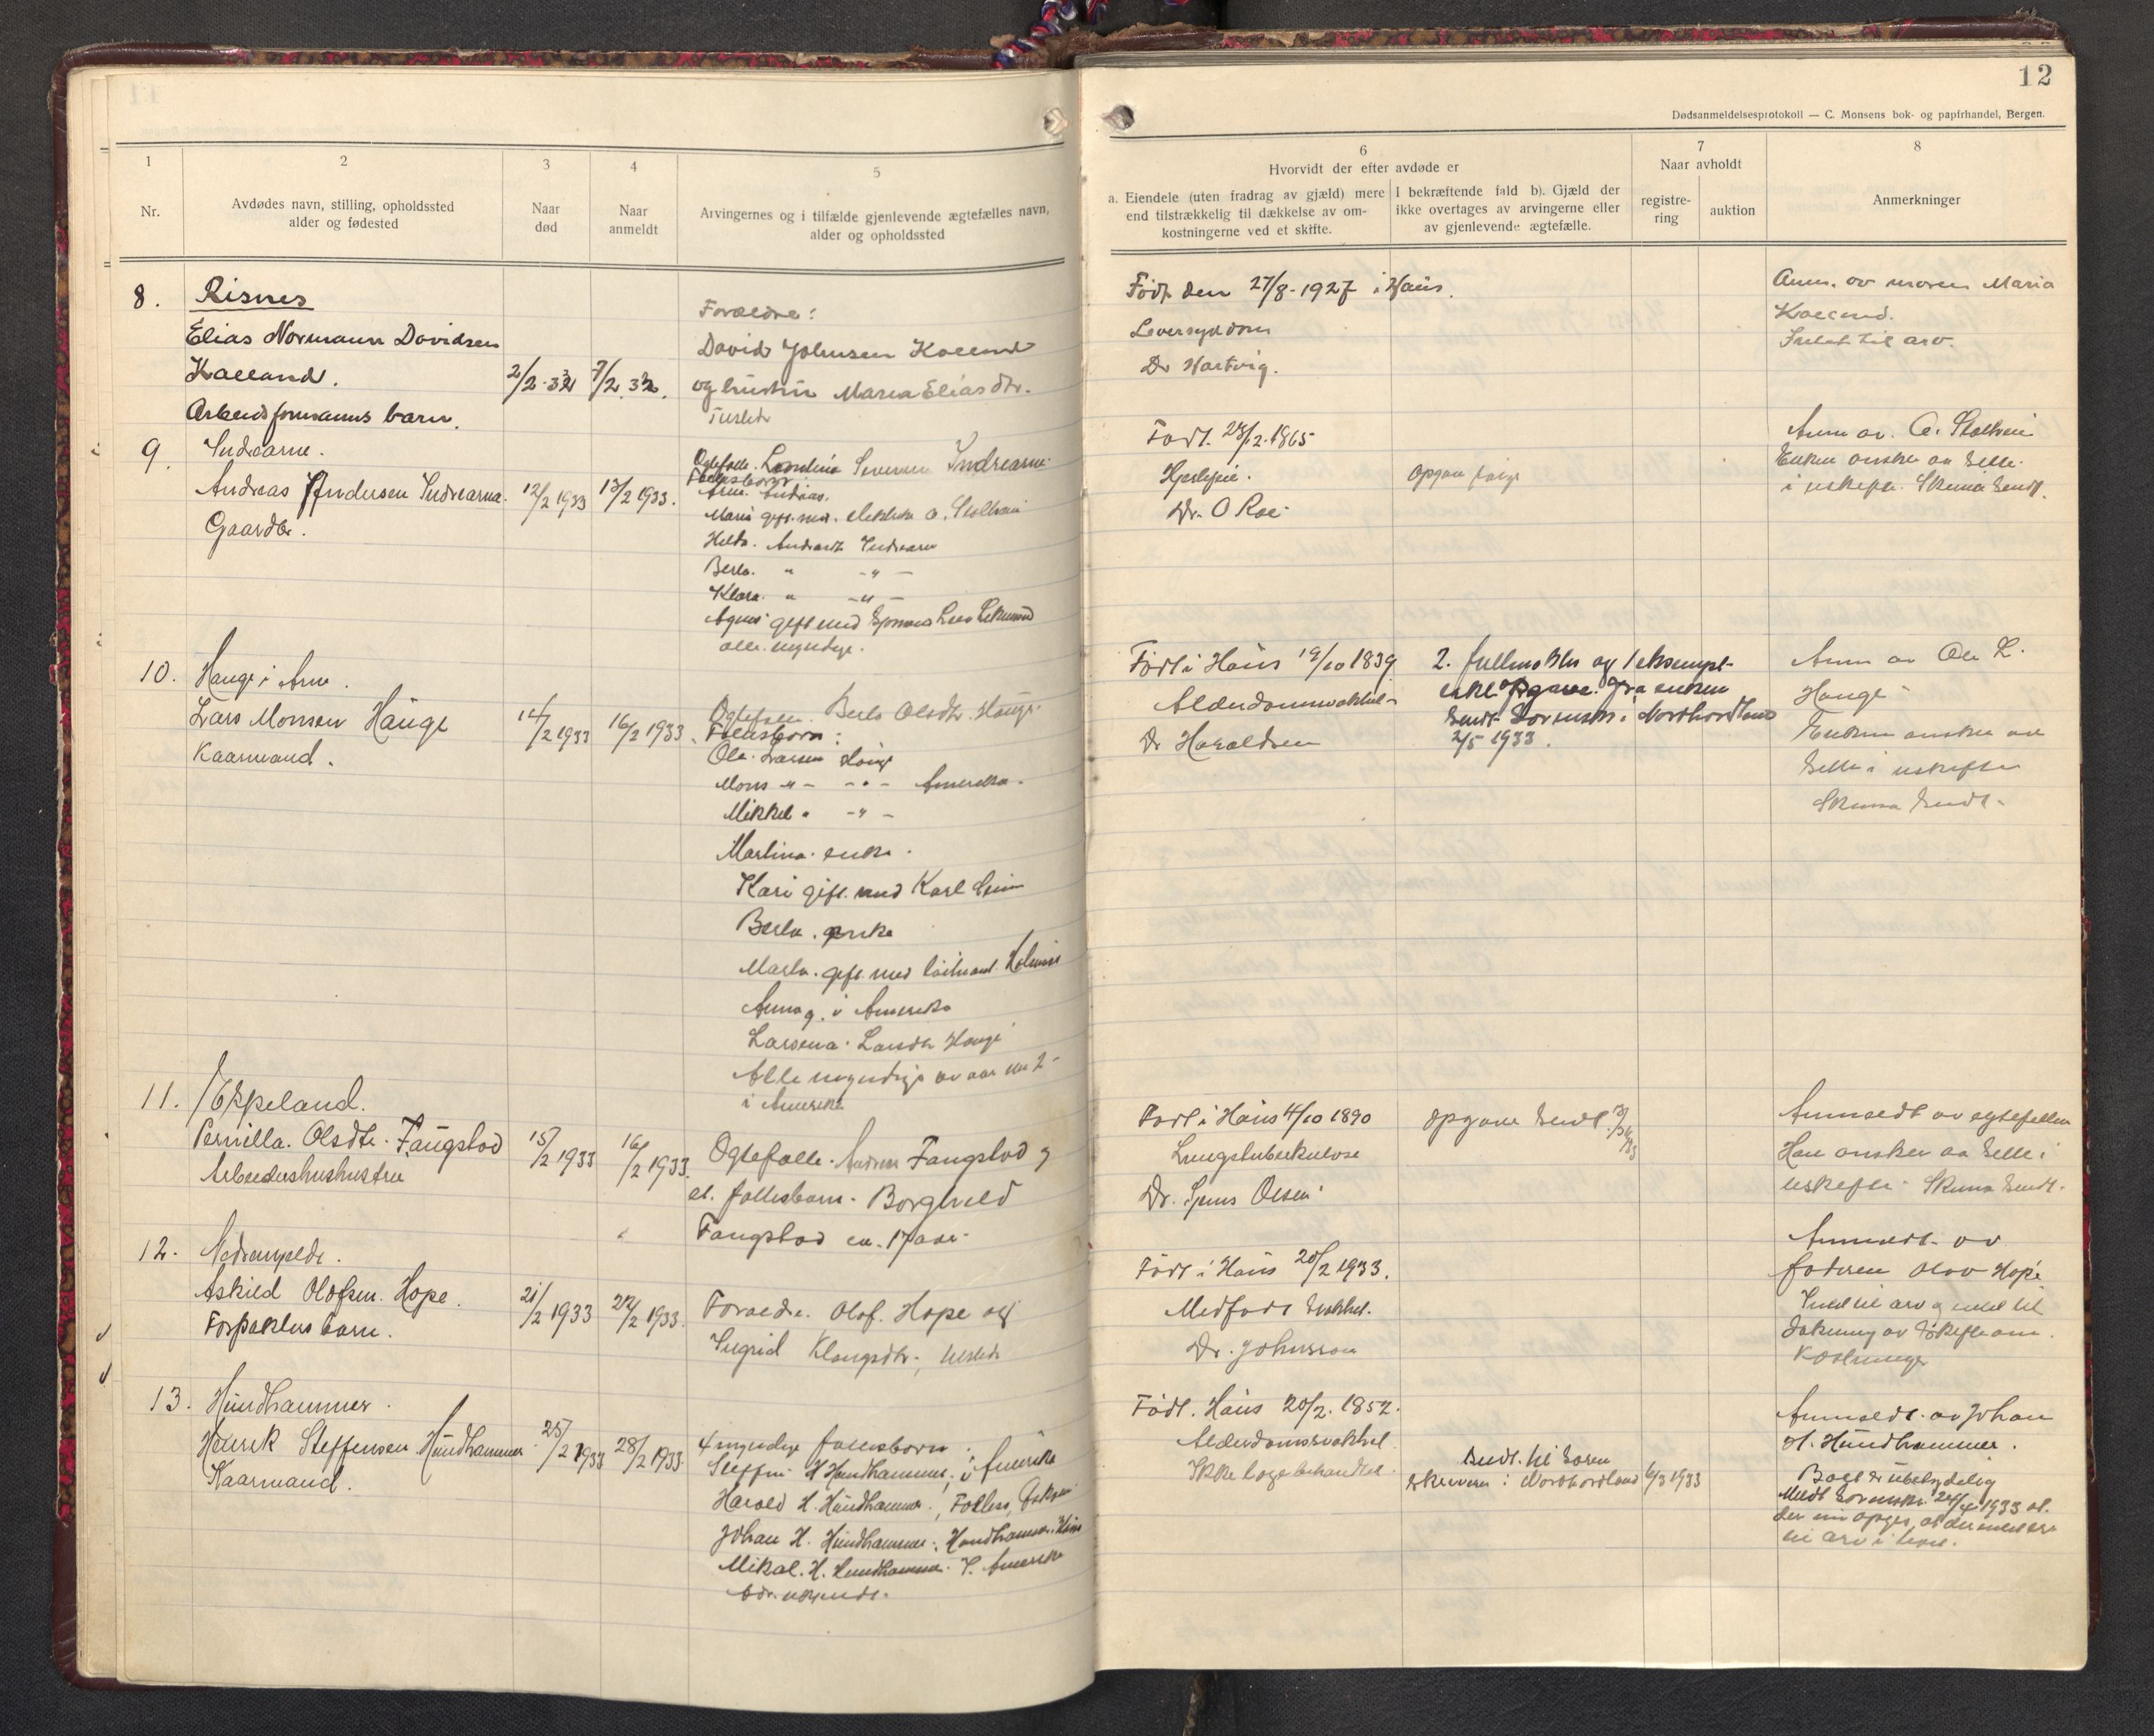 12
Dødsanmeldelsesprotokoll — C. Monsens bok- og papirhandel, Bergen.
1
Nr.
2
Avdødes navn, stilling, opholdssted
alder og fødested
3
Naar
død
4
Naar
anmeldt
5
Arvingernes og i tilfælde gjenlevende ægtefælles navn,
alder og opholdssted
6
Hvorvidt der efter avdøde er
a. Eiendele (uten fradrag av gjæld) mere
end tilstrækkelig til dækkelse av om-
kostningerne ved et skifte.
I bekræftende fald b). Gjæld der
ikke overtages av arvingerne eller
av gjenlevende ægtefælle.
7
Naar avholdt
registre-
ring
auktion
8
Anmerkninger
8.
Risnes
Elias Normann Davidsen
Kalland.
Arbeidsformanns barn.
2/2
7/2
Forældre:
David Johnsen Kalland
og hustru Maria Eliasdtr.
Født den 27/8-1927 i Haus.
Leversykdom
Dr Hartvig.
Anm. av moren Maria
Kalland.
Intet til arv.
9.
Indrearne.
Andreas Andersen Indrearna.
Gaardbr.
12/2 1933
13/2 1933.
Ægtefælle. Severine Indrearne.
Fællesbarn
Arne. Andreas.
Marie gift med
Hilda. Andrasdtr Indrearne
Berta. " - " -
Klara. " - " -
Agnes gift med
alle myndige.
Født. 28/12. 1865
Hjertefeil.
Dr. O Roe
Opgave
Anm av. A.
Enken ønsker aa sitte
i uskifte. Skema sendt.
10.
Hauge i Arne.
Lars Monsen Hauge
Kaarmand.
14/2 1933
16/2 1933.
Ægtefælle. Berta Olsdtr. Hauge.
Fællesbarn:
Ole Larsen Hauge
Mons " - - " - Amerika.
Mikkel " - " -
Martina. enke.
Kari gift med Karl Seim
Berta. enke
Marta. gift med
Anna g. i Amerika
Larsina. Larsdtr Hauge
Alle myndige av
i Amerika
Født i Haus 19/10 1839
Alderdomssvakhet
Dr Haraldsen
2. fullmakter og 1 eksempl.
opgave fra enken
sendt Sorensk. i Nordhordland
2/5 1933.
Anm av Ole L.
Hauge
Enken ønsker aa
sitte i uskifte
Skema sendt.
11.
Espeland.
Pernilla. Olsdtr. Fangstad
Arbeidershushustru
15/2 1933
16/2 1933.
Ægtefælle. Fangstad og
et. fællesbarn. Borghild
Fangstad ca. 17 aar.
Født i Haus 4/10 1890
Lungetuberkulose
Dr. Olsen
Opgave sendt.
Anmeldt av ægtefællen
Han ønsker aa sitte i
uskifte. Skema sendt.
12.
Askild Olofsen. Hope.
barn.
21/2 1933
22/2 1933.
Foræld. Olof. Hope og
Ingrid
Født i Haus 20/2 1933.
Medfødt svakhet.
Dr. Johnsson
Anmeldt av
faderen Olov Hope
Intet til arv og intet til
dækning av skifteom
kostninger
13.
Hundhammer.
Henrik Steffensen Hundhammer.
Kaarmand.
25/2 1933
28/2 1933
4 myndige fællesbarn:
Steffen H Hundhammer, i Amerika
Harald H. Hundhammer, Askøy
Johan H. Hundhammer, Hundhammer. Haus
Mikal. H. Hundhammer. I. Amerika
Adr. ukjendt.
Født. Haus 20/2. 1852.
Alderdomssvakhet
Ikke lægebehandlet.
Sendt. til Soren
skriveren i Nordhordland
6/3 1933
Anmeldt. av Johan
H. Hundhammer.
Boet er ubetydelig
Meldt Sorensk. 24/4 1933 at.